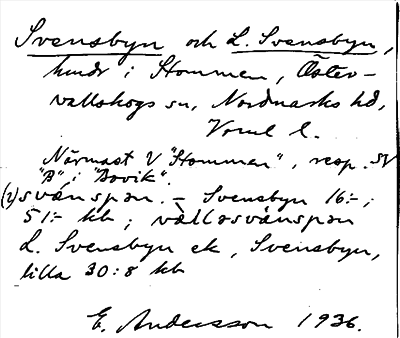 Svensbyn och L. Svensbyn,
hmdr i Stommen, Öster-
vallskogs sn, Nordmarks hd,
Vrml l.
Närmast V "Stommen", resp. SV
"B" i "Bovik".
(2) svä̀nspən. – Svensbyn 16:–;
51:– kb; vä̀lləsvänspən
L. Svensbyn ek, Svensbyn,
lilla 30:8 kb
E. Andersson 1936.